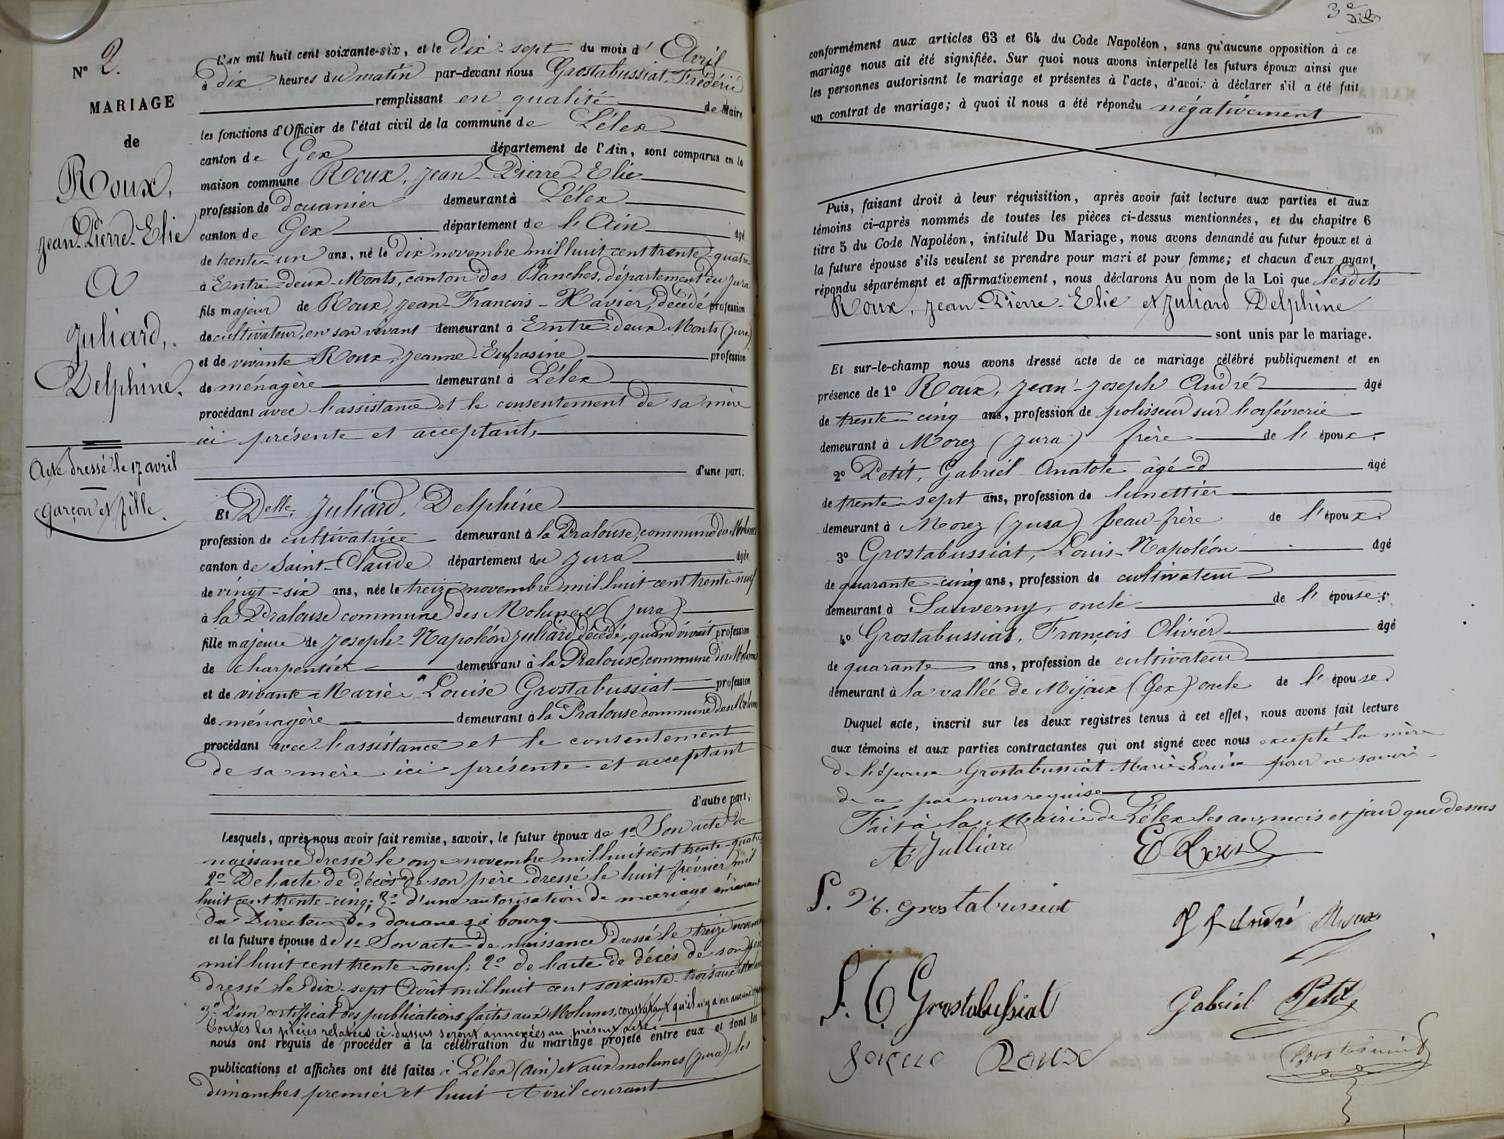 N° 2.
MARIAGE
de
Roux,
Jean-Pierre-Elie
&
Juliard,
Delphine.
Acte dressé le 17 avril
Garçon et fille.
L'AN mil huit cent soixante-six, et le dix-sept du mois d'Avril
à dix heures du matin par-devant nous Grostabussiat, Frédéric
remplissant en qualité de Maire
les fonctions d'Officier de l'état civil de la commune de Lélex
canton de Gex département de l'Ain, sont comparus en la
maison commune Roux, Jean-Pierre-Elie
profession de douanier demeurant à Lélex
canton de Gex département de l'Ain âgé
de trente-un ans, né le dix novembre mil huit cent trente-quatre
à Entre-deux-Monts, canton des Planches, département du Jura
fils majeur de Roux, Jean-François-Xavier, décédé profession
de cultivateur, en son vivant demeurant à Entre deux Monts (Jura)
et de vivante Roux, Jeanne-Eufrasine, profession
de ménagère demeurant à Lélex
procédant avec l'assistance et le consentement de sa mère
ici présente et acceptant,
d'une part;
Et Delle Juliard, Delphine
profession de cultivatrice demeurant à la Pralouse, commune des Molunes
canton de Saint-Claude département du Jura âgée
de vingt-six ans, née le treize novembre mil huit cent trente-neuf
à la Pralouse commune des Molunes (Jura)
fille majeure de Joseph-Napoléon Juliard, décédé, quand vivait profession
de charpentier demeurant à la Pralouse, commune des Molunes
et de vivante Marie Louise Grostabussiat profession
de ménagère demeurant à la Pralouse commune des Molunes
procédant avec l'assistance et le consentement
de sa mère ici présente et acceptant
d'autre part;
Lesquels, après nous avoir fait remise, savoir, le futur époux de 1° Son acte de
naissance dressé le onze novembre mil huit cent trente-quatre
2° De l'acte de décès de son père dressé le huit février mil
huit cent trente-cinq; 3° d'une autorisation de mariage émanant
du Directeur des douanes à bourg.
et la future épouse de 1° Son acte de naissance dressé le treize novembre
mil huit cent trente-neuf; 2° de l'acte de décès de son père
dressé le dix-sept Août mil huit cent soixante-trois aux Molunes
3° D'un certificat des publications faites aux Molunes, constatant qu'il n'y a eu aucune
Toutes les pièces relatées ci-dessus seront annexées au présent acte
nous ont requis de procéder à la célébration du mariage projeté entre eux et dont les
publications et affiches ont été faites à Lélex (ain) et aux molunes (jura) les
dimanches premier et huit Avril courant
3e
conformément aux articles 63 et 64 du Code Napoléon, sans qu'aucune opposition à ce
mariage nous ait été signifiée. Sur quoi nous avons interpellé les futurs époux ainsi que
les personnes autorisant le mariage et présentes à l'acte, d'avoir à déclarer s'il a été fait
un contrat de mariage; à quoi il nous a été répondu négativement
Puis, faisant droit à leur réquisition, après avoir fait lecture aux parties et aux
témoins ci-après nommés de toutes les pièces ci-dessus mentionnées, et du chapitre 6
titre 5 du Code Napoléon, intitulé Du Mariage, nous avons demandé au futur époux et à
la future épouse s'ils veulent se prendre pour mari et pour femme; et chacun d'eux ayant
répondu séparément et affirmativement, nous déclarons Au nom de la Loi que lesdits
Roux, Jean-Pierre-Elie et Juliard Delphine
sont unis par le mariage.
Et sur-le-champ nous avons dressé acte de ce mariage célébré publiquement et en
présence de 1° Roux, Jean-Joseph André âgé
de trente-cinq ans, profession de polisseur sur l'orfévrerie
demeurant à Morez (Jura) frère de l'époux.
2° Petit, Gabriel Anatole âgé d âgé
de trente-sept ans, profession de lunettier
demeurant à Morez (Jura) beau-frère de l'époux.
3° Grostabussiat, Louis-Napoléon âgé
de quarante-cinq ans, profession de cultivateur
demeurant à Sauverny, oncle de l'épouse;
4° Grostabussiat, François Olivier âgé
de quarante ans, profession de cultivateur
demeurant à la vallée de Mijoux (Gex) oncle de l'épouse.
Duquel acte, inscrit sur les deux registres tenus à cet effet, nous avons fait lecture
aux témoins et aux parties contractantes qui ont signé avec nous excepté la mère
de l'épouse Grostabussiat Marie-Louise pour ne savoir
de ce par nous requise
Fait à la Mairie de Lélex les an, mois et jour que dessus
D Julliard
E Roux
L. N. grostabussiat
J J André Roux
F. O Grostabussiat
Gabriel Petit
Roux
Grostabussiat